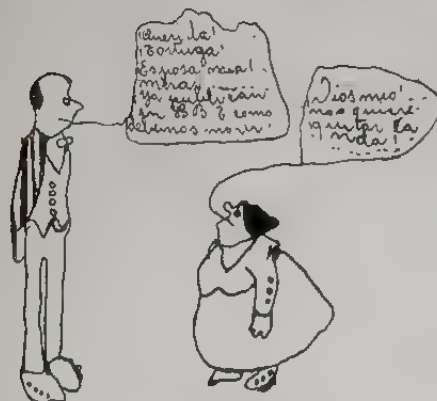 la!
Tortuga!
Esposa mia!
mira
ya publican
en como
debemos morir!
Dios mio!
nos quiere
quitar la
vida!